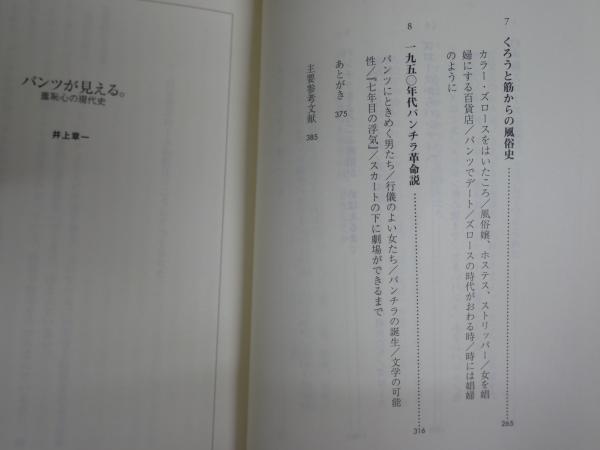 7 くろうと筋からの風俗史 265
カラー・ズロースをはいたころ／風俗嬢、ホステス、ストリッパー／女を娼
婦にする百貨店／パンツでデート／ズロースの時代がおわる時／時には娼婦
のように
8 一九五〇年代パンチラ革命説 316
パンツにときめく男たち／行儀のよい女たち／パンチラの誕生／文学の可能
性／『七年目の浮気』／スカートの下に劇場ができるまで
あとがき 375
主要参考文献 385
パンツが見える。
羞恥心の現代史
井上章一